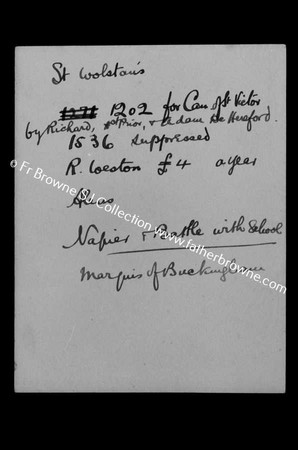 St Wolstan's
1202 for Can of St Victor
by Richard, 1st Prior, & Adam de Hereford.
1536 suppressed
R. Weston £4 a year
Napier & Battle with School
Marquis of Buckingham
© Fr Browne SJ Collection www.fatherbrowne.com